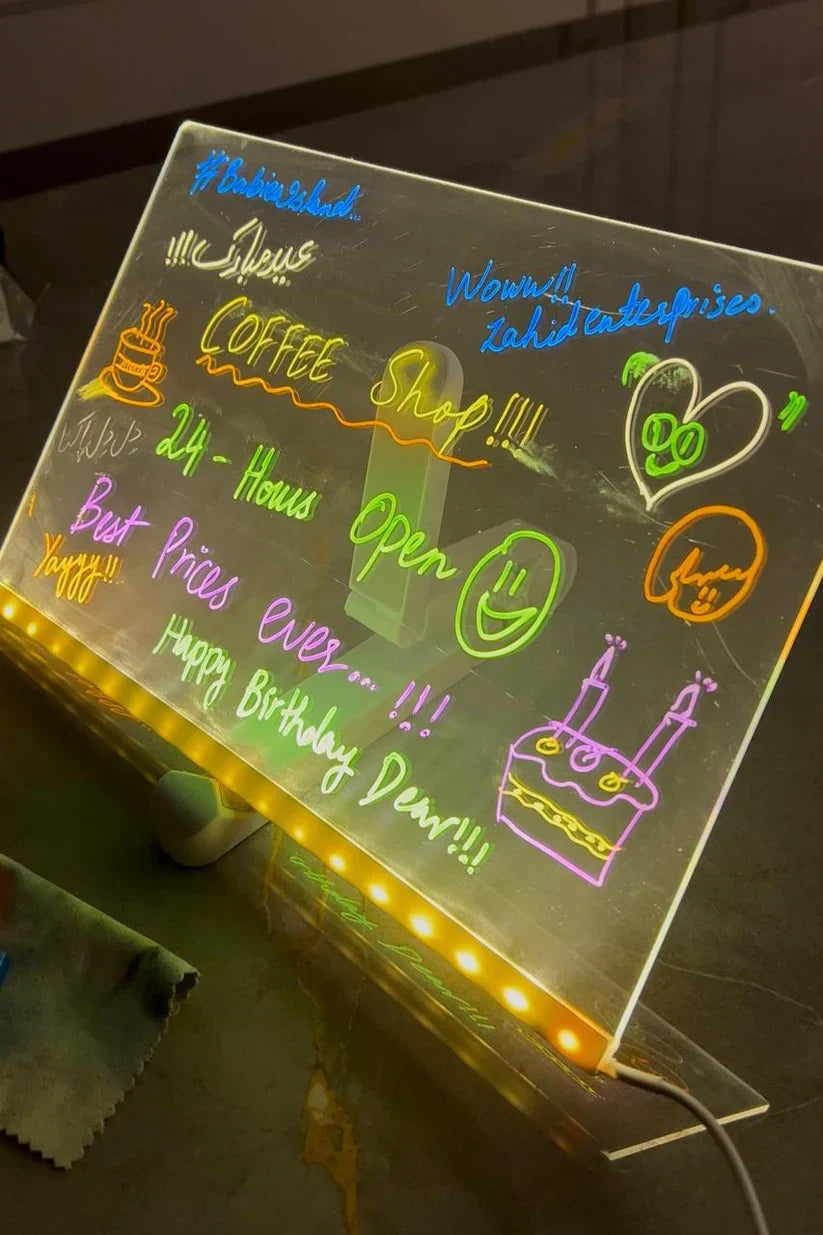 #Babiesisland..
عید مبارک!!!
Woww!!
Zahid enterprises.
COFFEE Shop!!!!
24-Hours Open
Best Prices ever...!!!
Yayyy!!
Happy Birthday Dear!!!